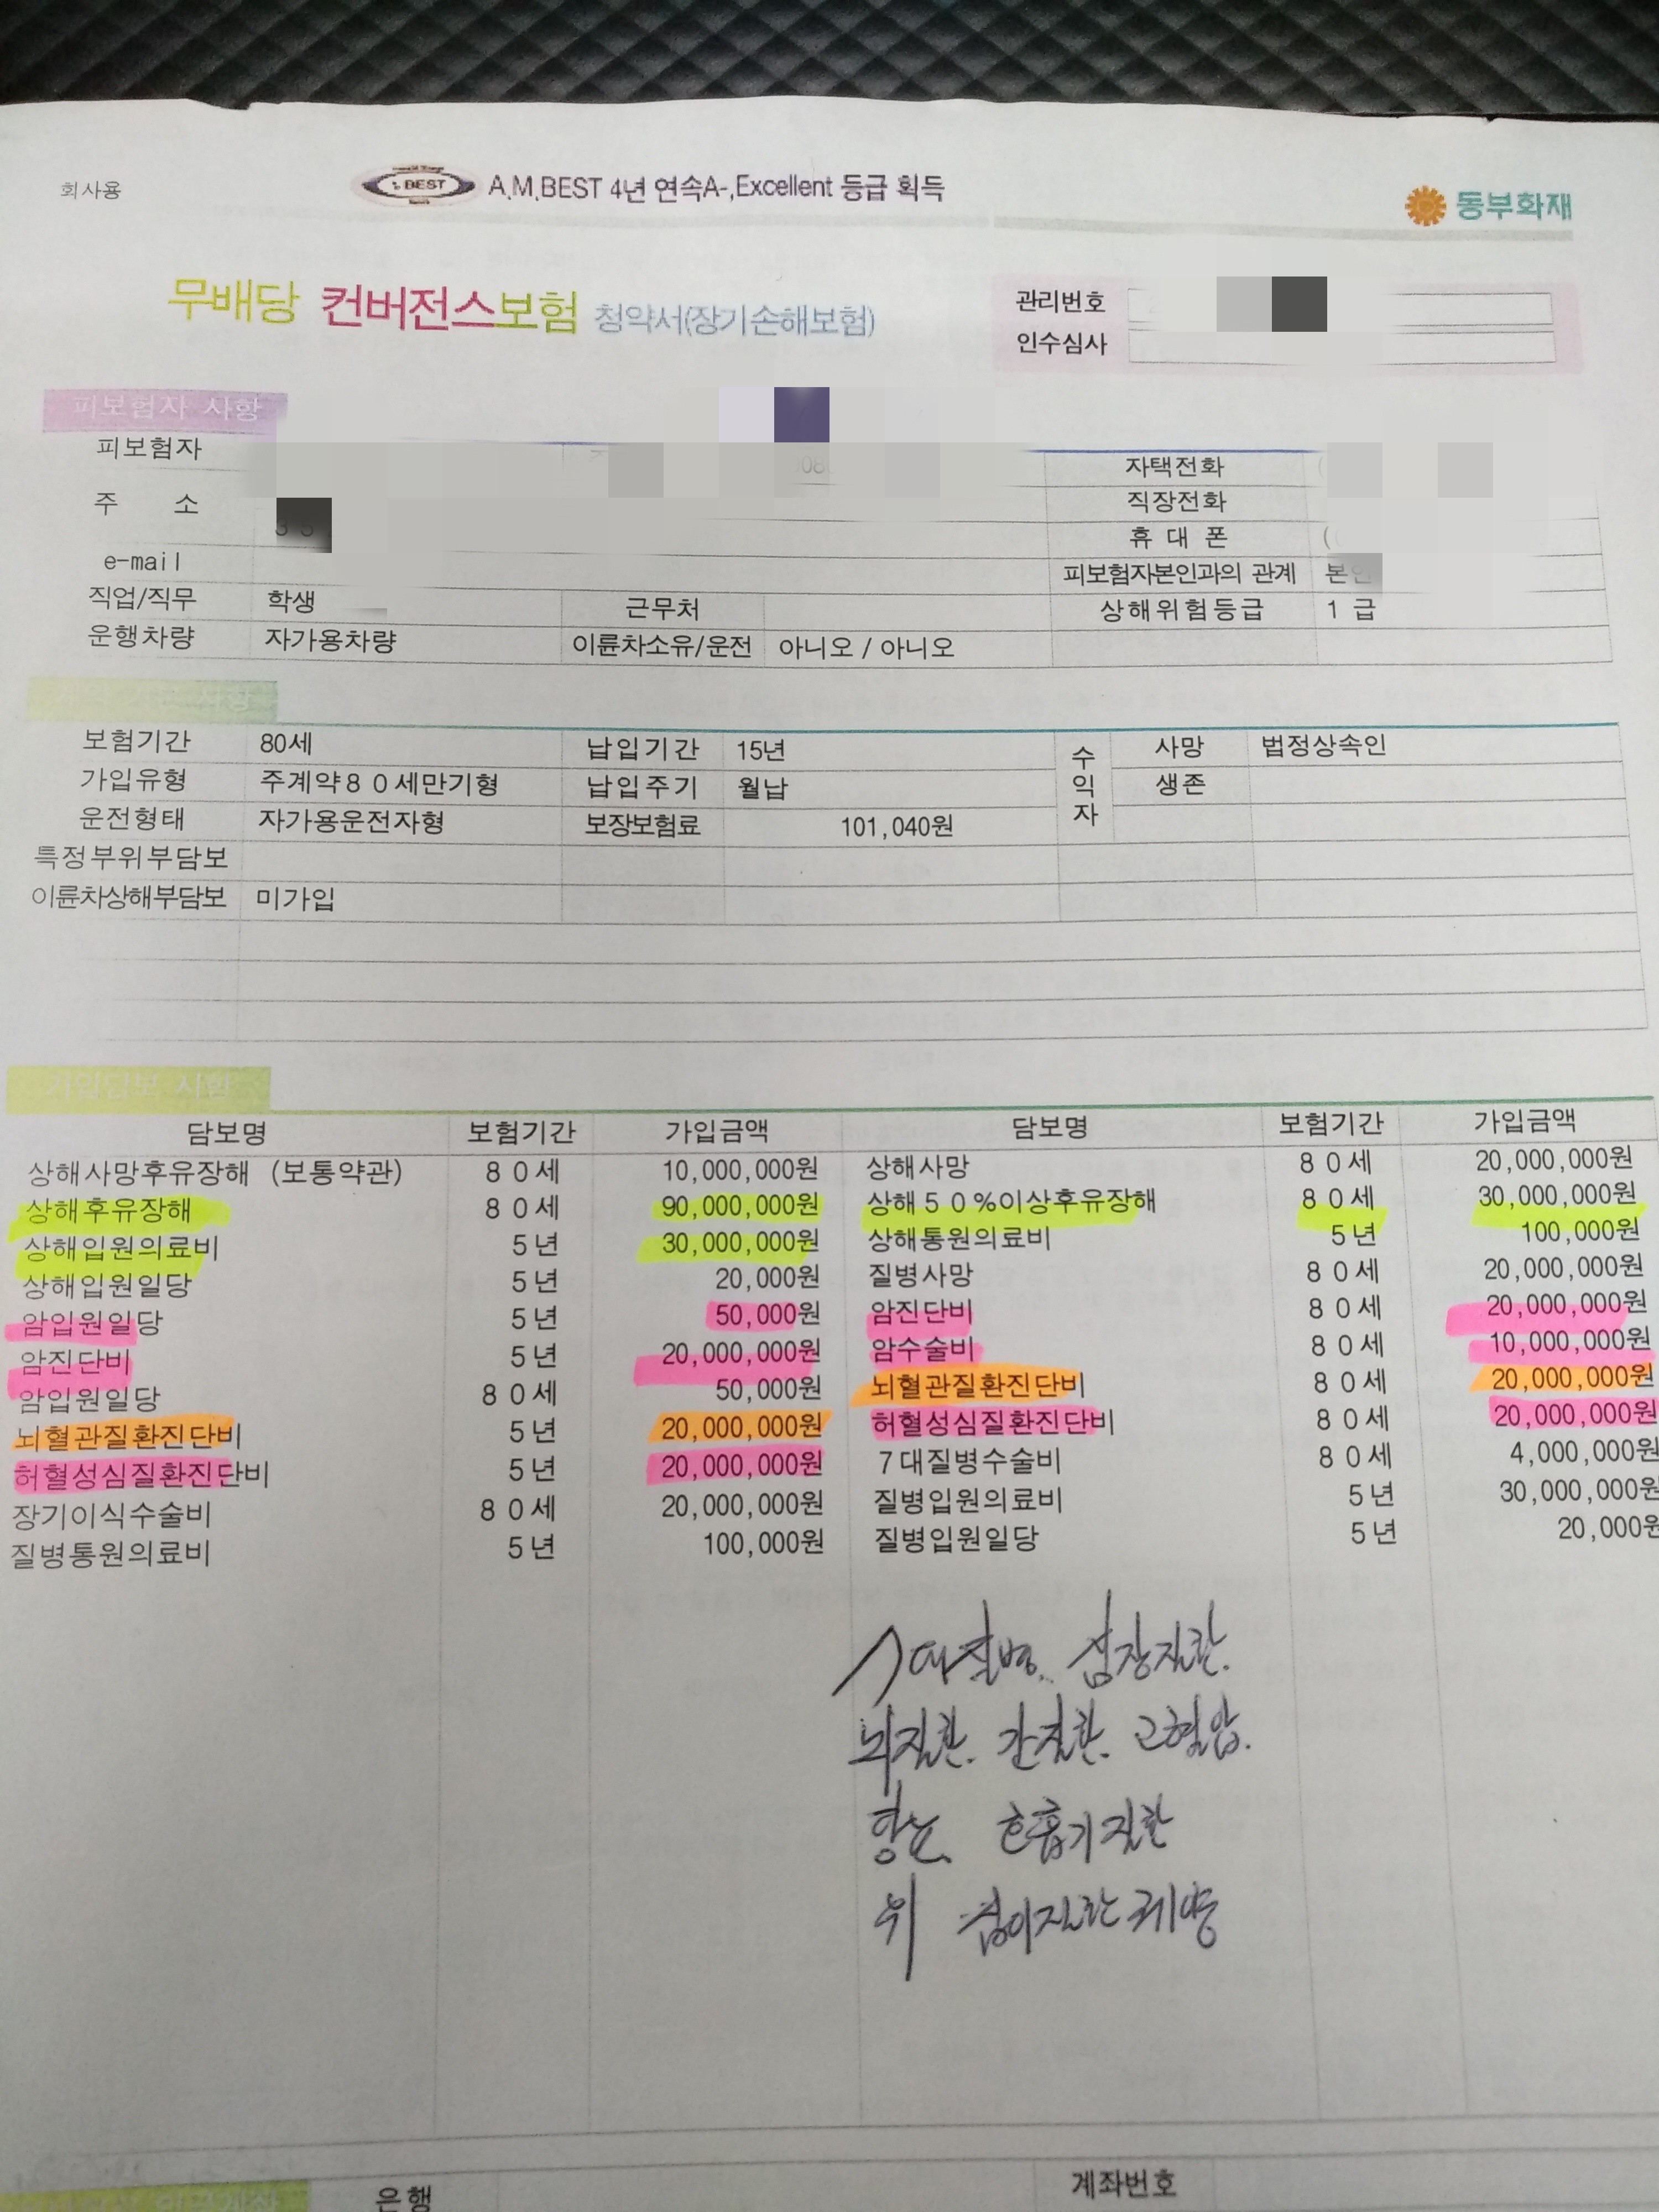 회사용
BEST A.M.BEST 4년 연속A-,Excellent 등급 획득
동부화재
무배당 컨버전스보험 청약서(장기손해보험)
관리번호
인수심사
피보험자 사항
피보험자 자택전화
주 소 직장전화
휴 대 폰
e-mail 피보험자본인과의 관계 본인
직업/직무 학생 근무처 상해위험등급 1 급
운행차량 자가용차량 이륜차소유/운전 아니오 / 아니오
사항
보험기간 80세 납입기간 15년 수익자 사망 법정상속인
가입유형 주계약８０세만기형 납입주기 월납 생존
운전형태 자가용운전자형 보장보험료 101,040원
특정부위부담보
이륜차상해부담보 미가입
가입담보 사항
담보명 보험기간 가입금액 담보명 보험기간 가입금액
상해사망후유장해 (보통약관) ８０세 10,000,000원 상해사망 ８０세 20,000,000원
상해후유장해 ８０세 90,000,000원 상해５０%이상후유장해 ８０세 30,000,000원
상해입원의료비 5년 30,000,000원 상해통원의료비 5년 100,000원
상해입원일당 5년 20,000원 질병사망 ８０세 20,000,000원
암입원일당 5년 50,000원 암진단비 ８０세 20,000,000원
암진단비 5년 20,000,000원 암수술비 ８０세 10,000,000원
암입원일당 ８０세 50,000원 뇌혈관질환진단비 ８０세 20,000,000원
뇌혈관질환진단비 5년 20,000,000원 허혈성심질환진단비 ８０세 20,000,000원
허혈성심질환진단비 5년 20,000,000원 7대질병수술비 ８０세 4,000,000원
장기이식수술비 ８０세 20,000,000원 질병입원의료비 5년 30,000,000원
질병통원의료비 5년 100,000원 질병입원일당 5년 20,000원
7대질병. 심장질환.
뇌질환. 간질환. 고혈압.
당뇨. 호흡기질환
위 십이지장궤양
은행 계좌번호